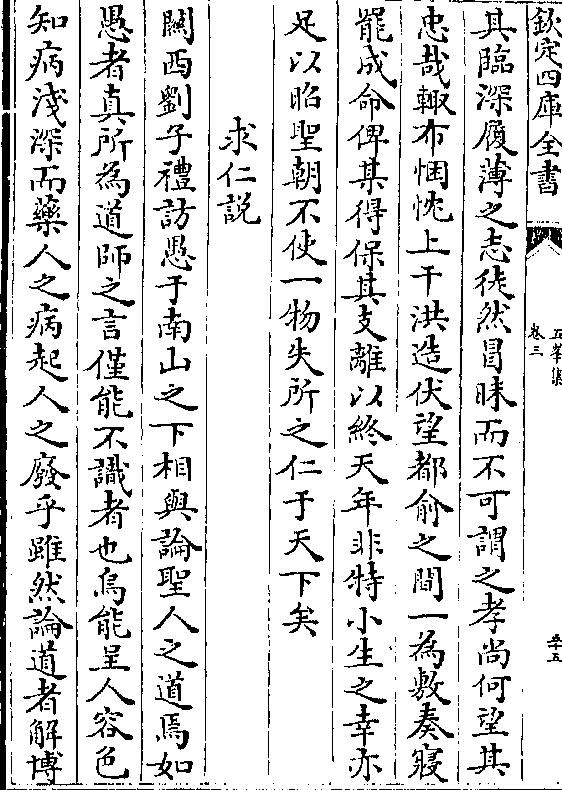 欽定四庫全書
五峯集
卷三
其臨深履薄之志徒然冒昧而不可謂之孝尚何望其
忠哉輙布悃忱上干洪造伏望都俞之間一為敷奏寢
罷成命俾某得保其支離以終天年非特小生之幸亦
足以昭聖朝不使一物失所之仁于天下矣
求仁說
關西劉子禮訪愚于南山之下相與論聖人之道焉如
愚者真所為道師之言僅能不識者也烏能呈人容色
知病淺深而藥人之病起人之廢乎雖然論道者解博